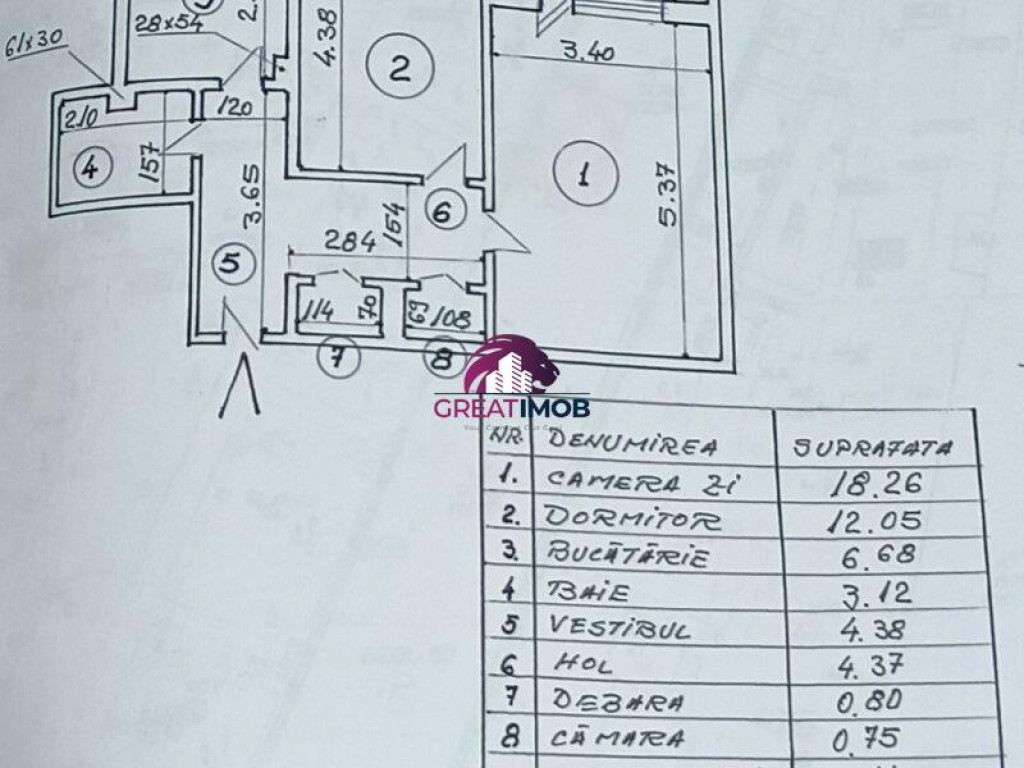 28x54
61x30
4.38
2
3.40
210
120
157
4
3.65
1
5.37
6
154
284
5
114
70
69
108
7
8
GREATIMOB
NR. DENUMIREA SUPRAFATA
1. CAMERA Zi 18.26
2. DORMITOR 12.05
3. BUCĂTĂRIE 6.68
4 BAIE 3.12
5 VESTIBUL 4.38
6 HOL 4.37
7 DEBARA 0.80
8 CĂMARA 0.75